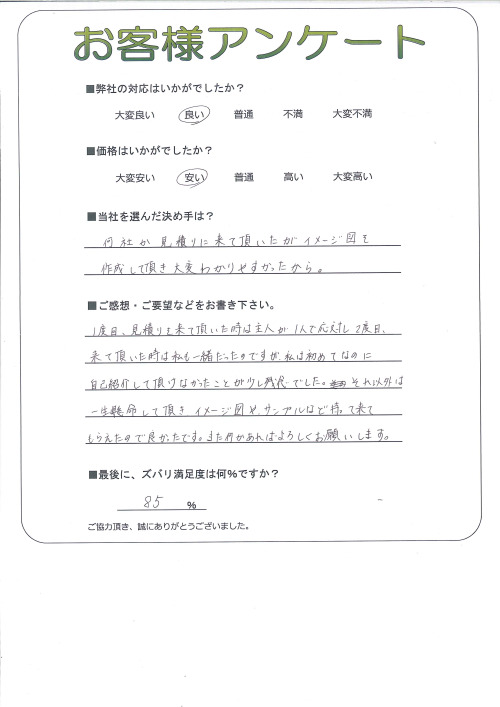 お客様アンケート
■弊社の対応はいかがでしたか？
大変良い 良い 普通 不満 大変不満
■価格はいかがでしたか？
大変安い 安い 普通 高い 大変高い
■当社を選んだ決め手は？
何社か見積りに来て頂いたがイメージ図を
作成して頂き大変わかりやすかったから。
■ご感想・ご要望などをお書き下さい。
1度目、見積りを来て頂いた時は主人が1人で応対し2度目、
来て頂いた時は私も一緒だったのですが私は初めてなのに
自己紹介して頂けなかったことが少し残念でした。それ以外は
一生懸命して頂きイメージ図や、サンプルなど持って来て
もらえたので良かったです。また何かあればよろしくお願いします。
■最後に、ズバリ満足度は何%ですか？
85 %
ご協力頂き、誠にありがとうございました。